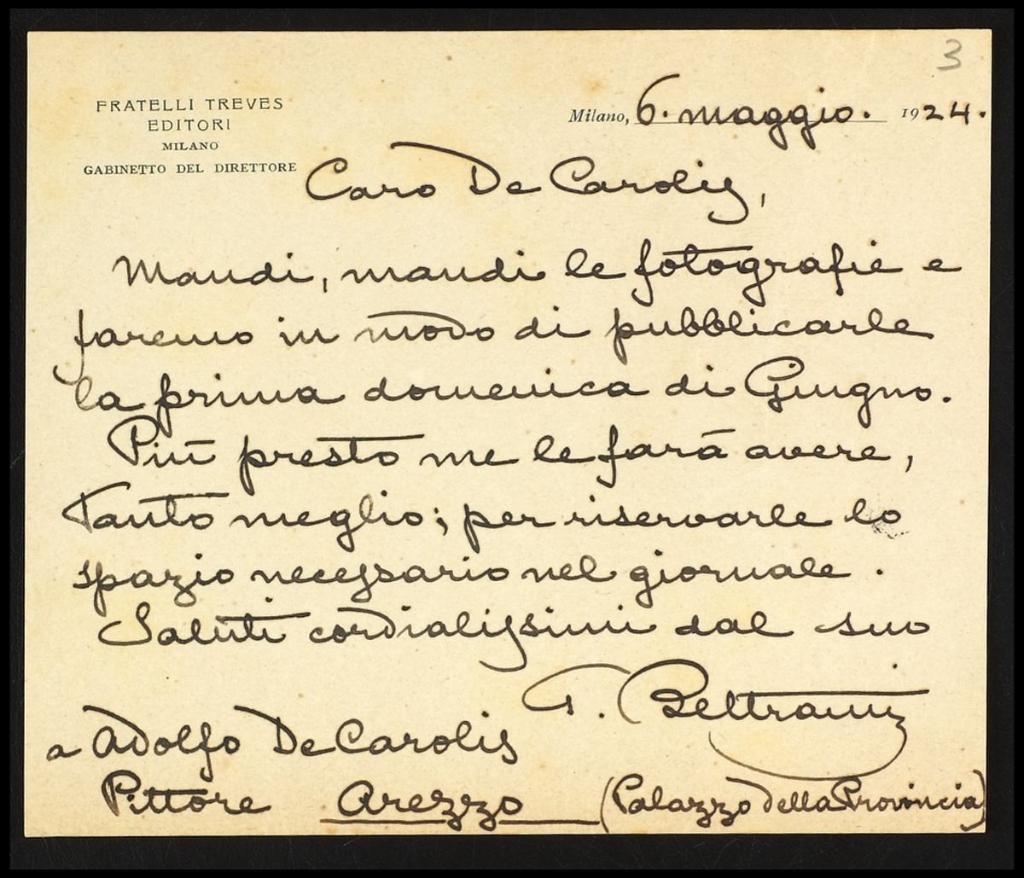 3
FRATELLI TREVES
EDITORI
MILANO
GABINETTO DEL DIRETTORE
Milano, 6. maggio. 1924.
Caro De Carolis,
Mandi, mandi le fotografie e
faremo in modo di pubblicarle
la prima domenica di Giugno.
Più presto me le farà avere,
tanto meglio; per riservarle lo
spazio necessario nel giornale.
Saluti cordialissimi dal suo
G. Beltrami
a Adolfo De Carolis
Pittore Arezzo (Palazzo della Provincia)